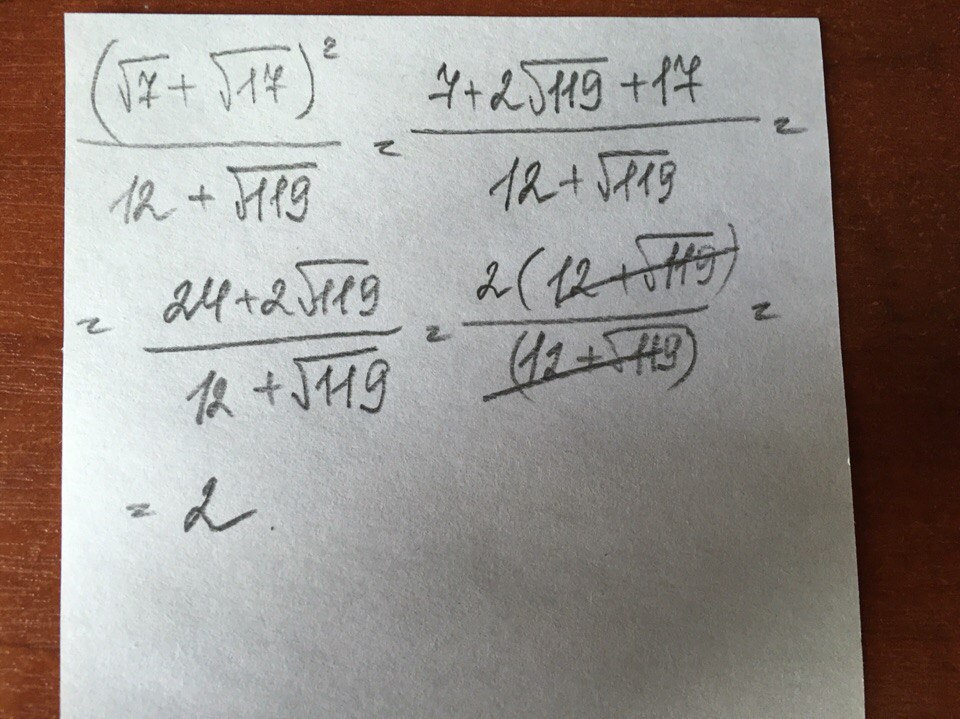 (√7 + √17)² / 12 + √119 = 7 + 2√119 + 17 / 12 + √119 =
= 24 + 2√119 / 12 + √119 = 2(12 + √119) / (12 + √119) =
= 2.